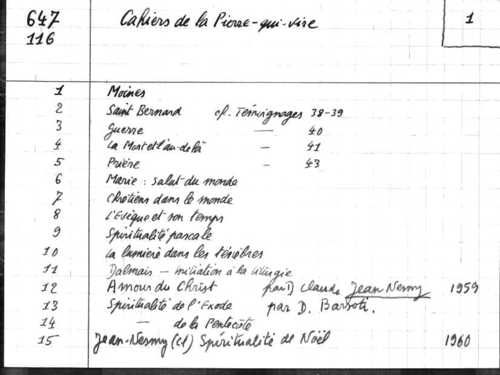 647 Cahiers de la Pierre-qui-vire 1
116
1 Moines
2 Saint Bernard cf. Témoignages 38-39
3 Guerre — 40
4 La Mort et l'au-delà — 41
5 Prière — 43
6 Marie : salut du monde
7 Chrétiens dans le monde
8 L'Evêque et son temps
9 Spiritualité pascale
10 La lumière dans les ténèbres
11 Dalmais — initiation à la liturgie
12 Amour du Christ par D Claude Jean Nesmy 1959
13 Spiritualité de l'Exode par D. Barsoti.
14 — de la Pentecôte
15 Jean-Nesmy (Cl) Spiritualité de Noël 1960